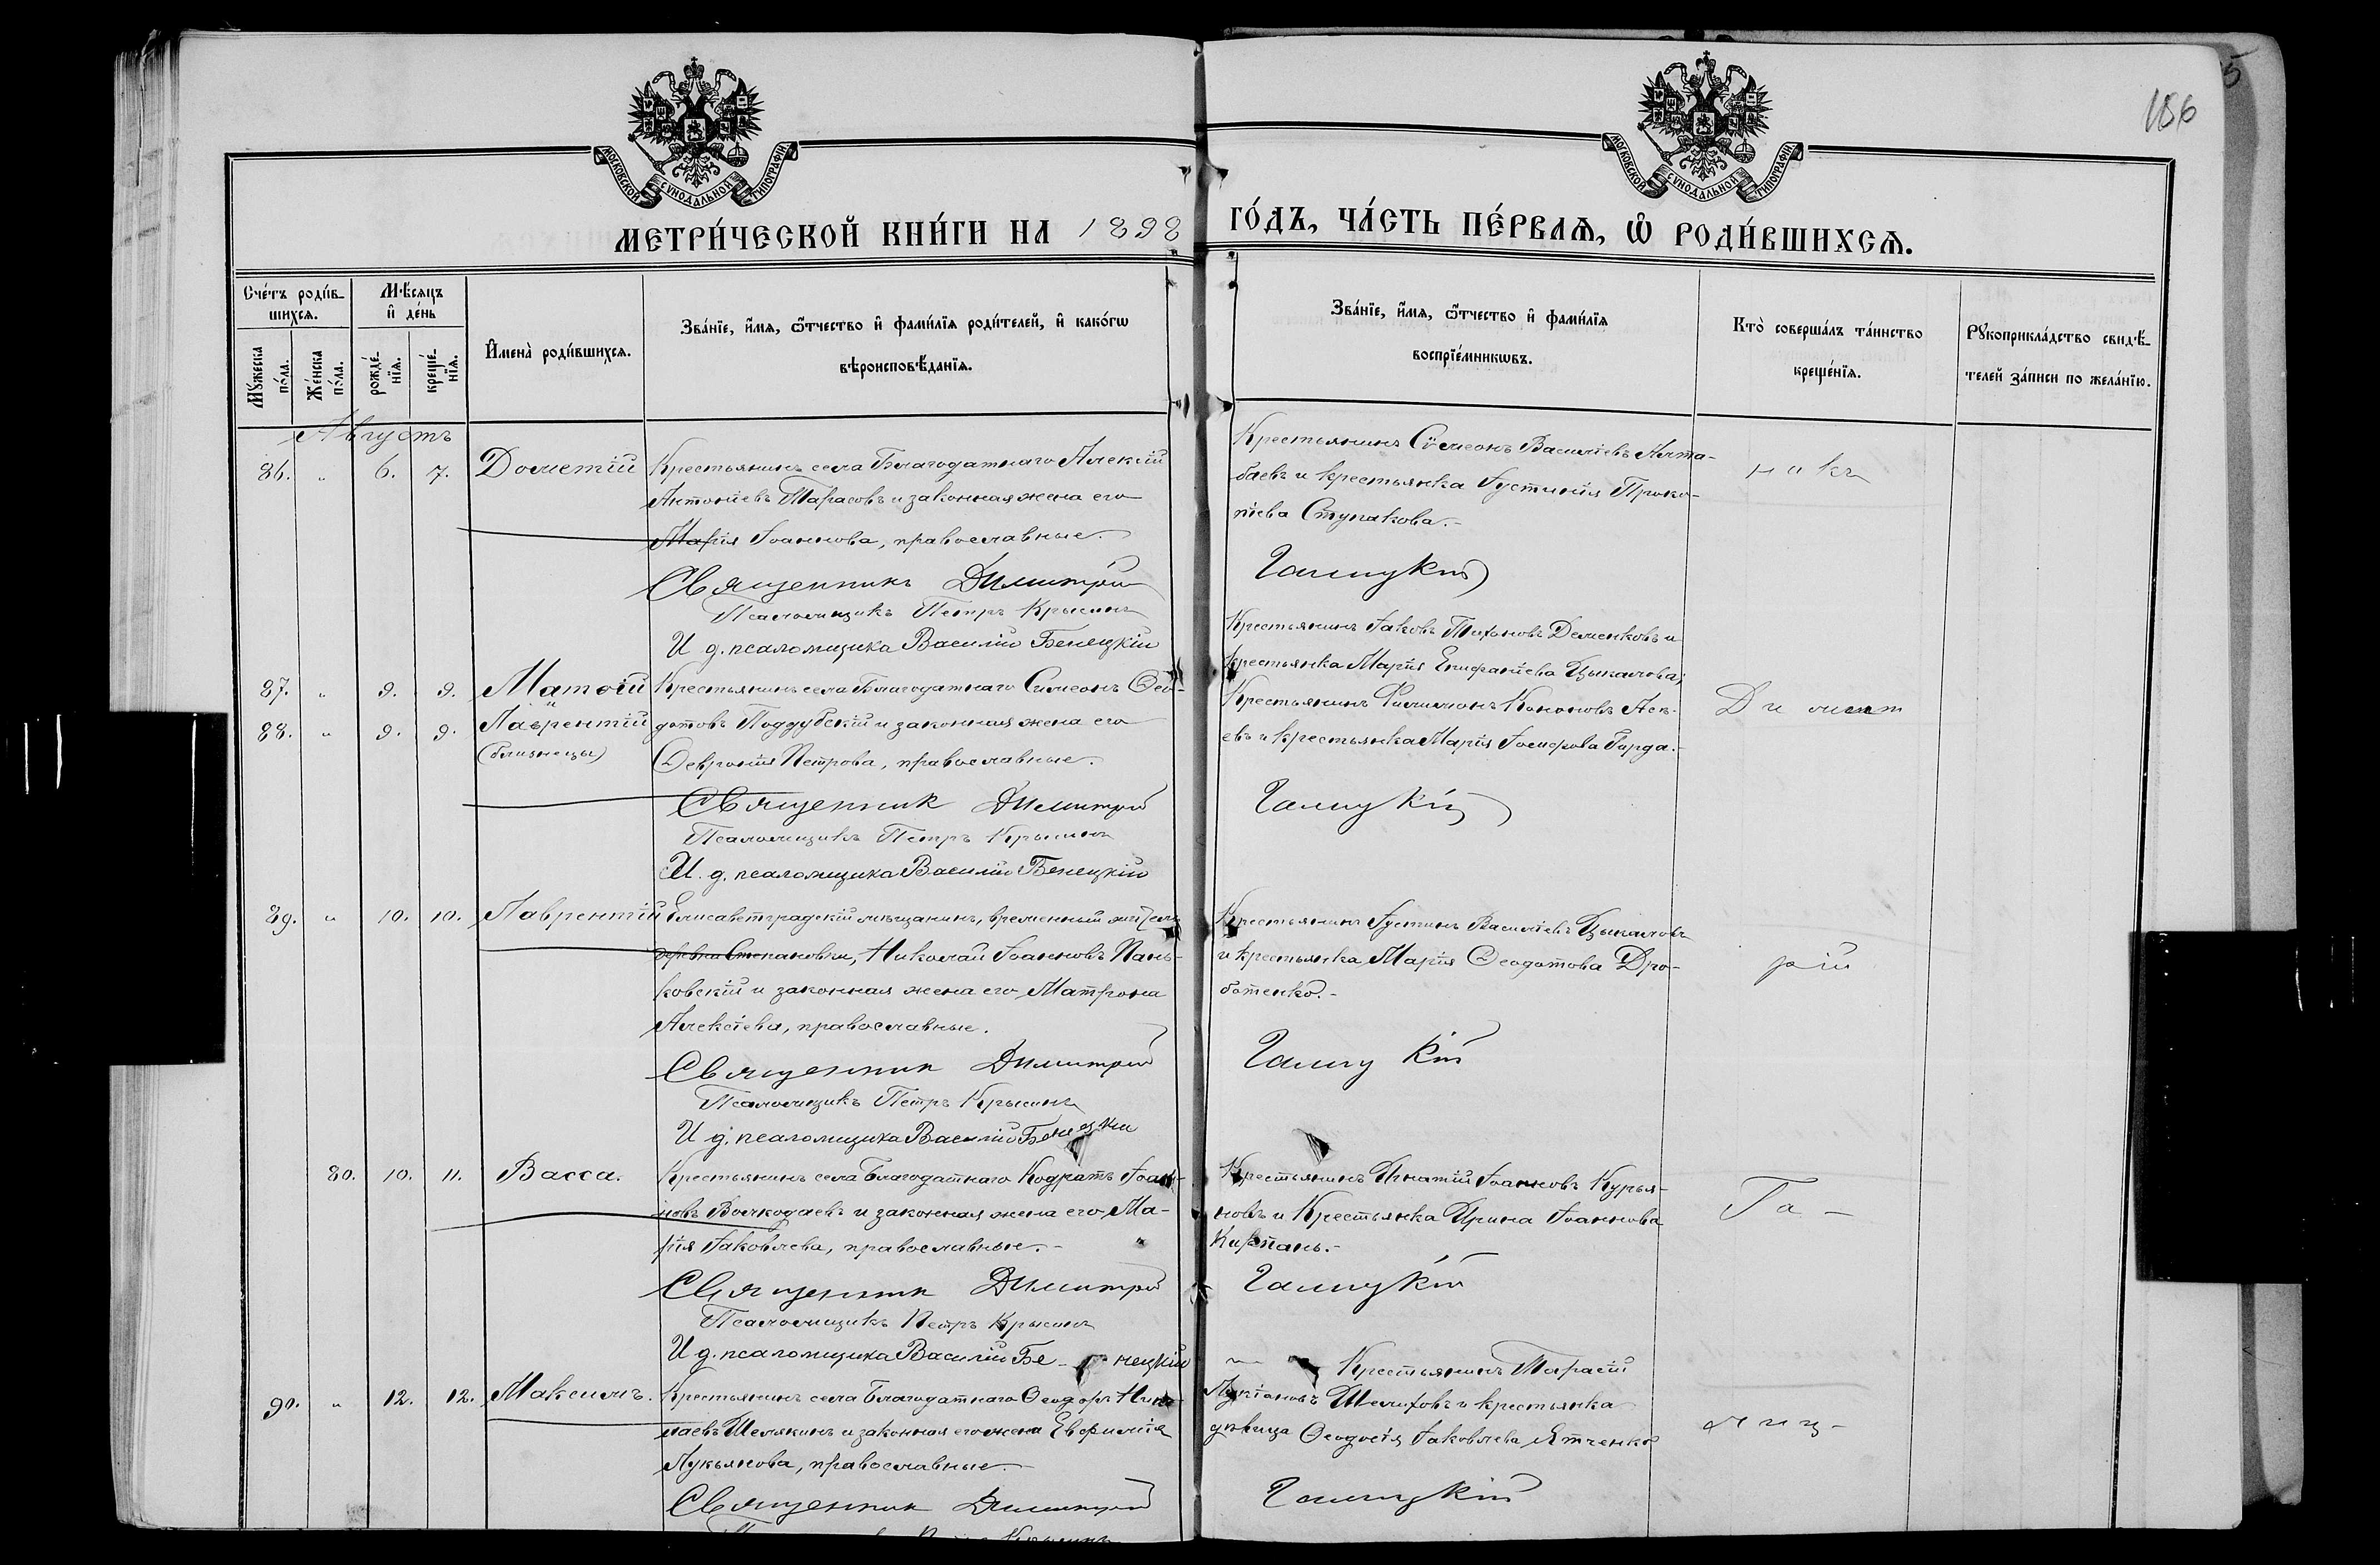 156
МОСКОВСКОЙ СУНОДАЛЬНОЙ ТИПОГРАФІИ
МОСКОВСКОЙ СУНОДАЛЬНОЙ ТИПОГРАФІИ
МЕТРИ́ЧЕСКОЙ КНИ́ГИ НА 1898 ГО́ДЪ, ЧА́СТЬ ПЕ́РВАѦ, Ѡ҆ РОДИ́ВШИХСѦ.
Сче́тъ роди́в-
шихсѧ.
Мꙋ́жеска
по́ла.
Же́нска
по́ла.
Мѣ́сяцъ
и҆ де́нь
рожде́-
нїѧ.
креще́-
нїѧ.
И҆мена̀ роди́вшихсѧ.
Зва́нїе, и҆́мѧ, ѻ҆́тчество и҆ фами́лїѧ роди́телей, и҆ како́гѡ
вѣроисповѣ́данїѧ.
Зва́нїе, и҆́мѧ, ѻ҆́тчество и҆ фами́лїѧ
воспрїе́мникѡвъ.
Кто̀ соверша́лъ та́инство
креще́нїѧ.
Рꙋкоприкла́дство свидѣ́-
телей за́писи по жела́нїю.
Августъ
86. " 6. 7. Дометій
Крестьянинъ села Благодатнаго Алексій
Антоніевъ Тарасовъ и законная жена его
Марія Іоаннова, православные.
Священникъ Димитрій Галицкій
Псаломщикъ Петръ Крысинъ
И д. псаломщика Василій Бенецкій
Крестьянинъ Сѵмеонъ Василіевъ Алта-
баевъ и крестьянка Іустинія Проко-
піева Ступакова.-
87. " 9. 9. Матѳій
и
88. " 9. 9. Лаврентій
(близнецы)
Крестьянинъ села Благодатнаго Симеонъ Ѳео-
дотовъ Поддубскій и законная жена его
Ѳевронія Петрова, православные.
Священник Димитрій Галицкій
Псаломщикъ Петръ Крысинъ
И. д. псаломщика Василій Бенецкій
Крестьянинъ Іаковъ Деменковъ и
крестьянка Марія Епифаніева Цыкалова;
Крестьянинъ Филимонъ Кононовъ
евъ и крестьянка Марія Іосифова
Димит
89. " 10. 10. Лаврентій
Елисаветградскій мѣщанинъ, временный житель
деревни Степановки, Николай Іоанновъ Пань-
ковскій и законная жена его Матрона
Алексіева, православные.
Священник Димитрій Галицкій
Псаломщикъ Петръ Крысинъ
И д. псаломщика Василій Бенецкій
Крестьянинъ Іустинъ Василіевъ Цыкаловъ
и крестьянка Марія Ѳеодотова Дро-
ботенко.-
рій
80. 10. 11. Васса.
Крестьянинъ села Благодатнаго Кодратъ Іоан-
новъ Волкодаевъ и законная жена его Ма-
рія Іаковлева, православные.-
Священник Димитрій Галицкій
Псаломщикъ Петръ Крысинъ
И д. псаломщика Василій Бе- нецкій
Крестьянинъ Игнатій Іоанновъ Курья-
новъ и Крестьянка Ирина Іоаннова
Га-
90. " 12. 12. Максимъ.
Крестьянинъ села Благодатнаго Ѳеодоръ Нико-
лаевъ Шелякинъ и законная его жена Евфимія
Лукьянова, православные.-
Священник Димитрій Галицкій
Крестьянинъ Тарасій
Лукіановъ Шелиховъ и крестьянка
дѣвица Ѳеодосія Іаковлева Ятченко
лиц-